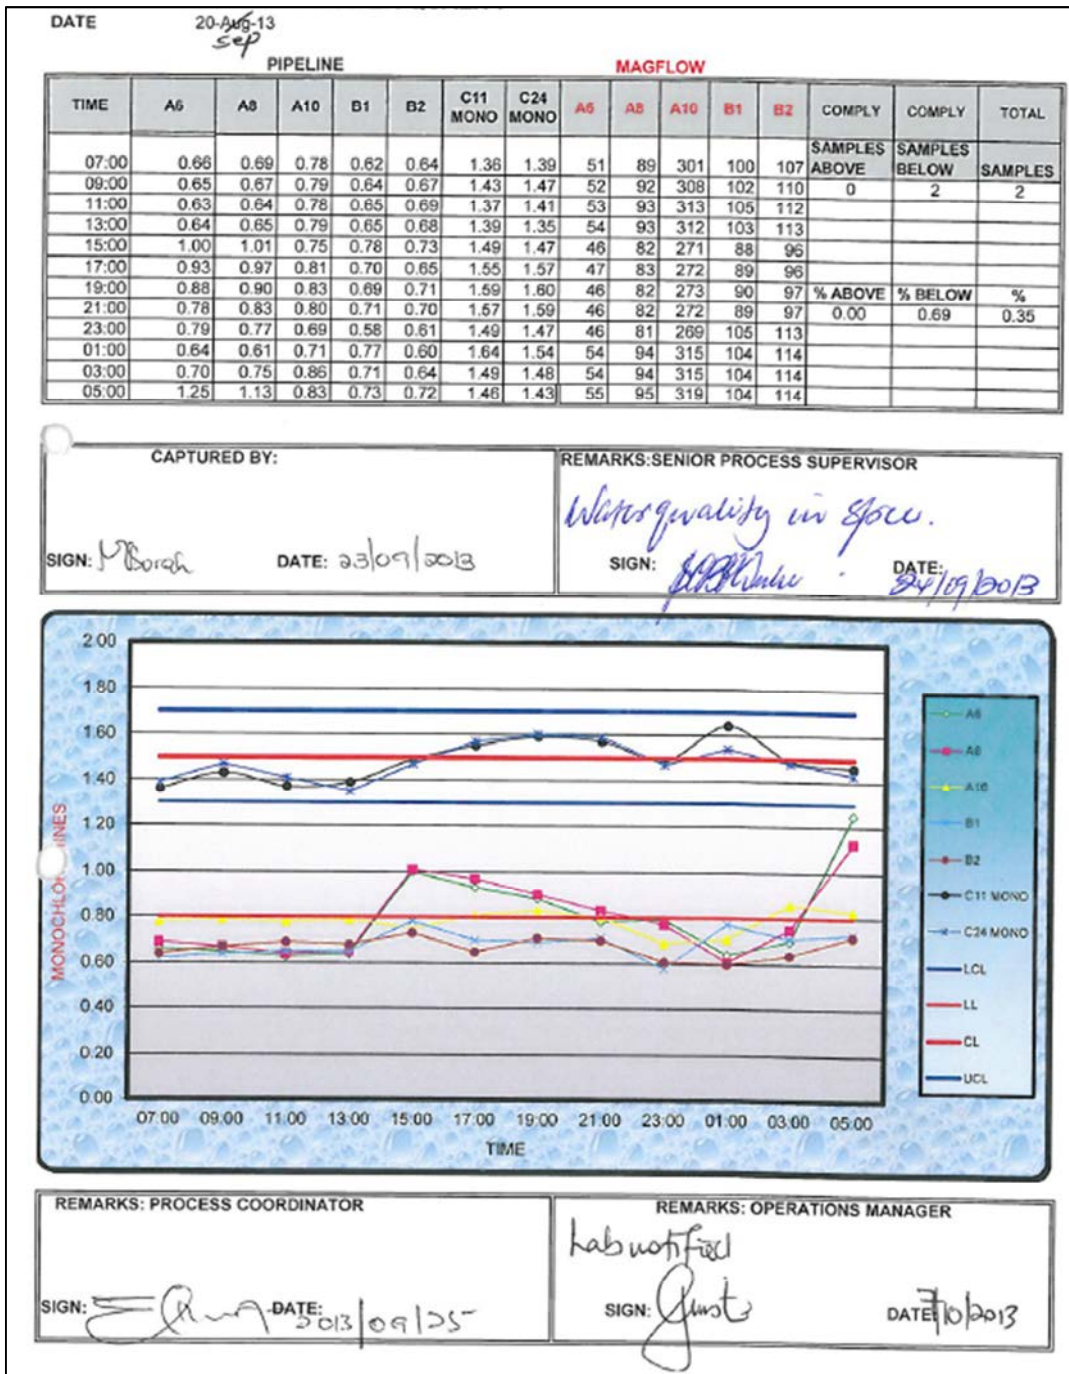 DATE 20-Aug-13
Sep
PIPELINE MAGFLOW
TIME A6 A8 A10 B1 B2 C11 MONO C24 MONO A6 A8 A10 B1 B2 COMPLY COMPLY TOTAL
SAMPLES ABOVE SAMPLES BELOW SAMPLES
07:00 0.66 0.69 0.78 0.62 0.64 1.36 1.39 51 89 301 100 107
09:00 0.65 0.67 0.79 0.64 0.67 1.43 1.47 52 92 308 102 110 0 2 2
11:00 0.63 0.64 0.78 0.65 0.69 1.37 1.41 53 93 313 105 112
13:00 0.64 0.65 0.79 0.65 0.68 1.39 1.35 54 93 312 103 113
15:00 1.00 1.01 0.75 0.78 0.73 1.49 1.47 46 82 271 88 96
17:00 0.93 0.97 0.81 0.70 0.65 1.55 1.57 47 83 272 89 96
19:00 0.88 0.90 0.83 0.69 0.71 1.59 1.60 46 82 273 90 97 % ABOVE % BELOW %
21:00 0.78 0.83 0.80 0.71 0.70 1.57 1.59 46 82 272 89 97 0.00 0.69 0.35
23:00 0.79 0.77 0.69 0.58 0.61 1.49 1.47 46 81 269 105 113
01:00 0.64 0.61 0.71 0.77 0.60 1.64 1.54 54 94 315 104 114
03:00 0.70 0.75 0.86 0.71 0.64 1.49 1.48 54 94 315 104 114
05:00 1.25 1.13 0.83 0.73 0.72 1.46 1.43 55 95 319 104 114
CAPTURED BY:
SIGN: DATE: 23/09/2013
REMARKS:SENIOR PROCESS SUPERVISOR
Water quality in spec.
SIGN: DATE: 24/09/2013
2.00
1.80
1.60
1.40
1.20
1.00
0.80
0.60
0.40
0.20
0.00
07:00 09:00 11:00 13:00 15:00 17:00 19:00 21:00 23:00 01:00 03:00 05:00
TIME
A6
A8
A10
B1
B2
C11 MONO
C24 MONO
LCL
LL
CL
UCL
REMARKS: PROCESS COORDINATOR
SIGN: DATE: 2013/09/25
REMARKS: OPERATIONS MANAGER
Lab notified
SIGN: DATE 7/10/2013